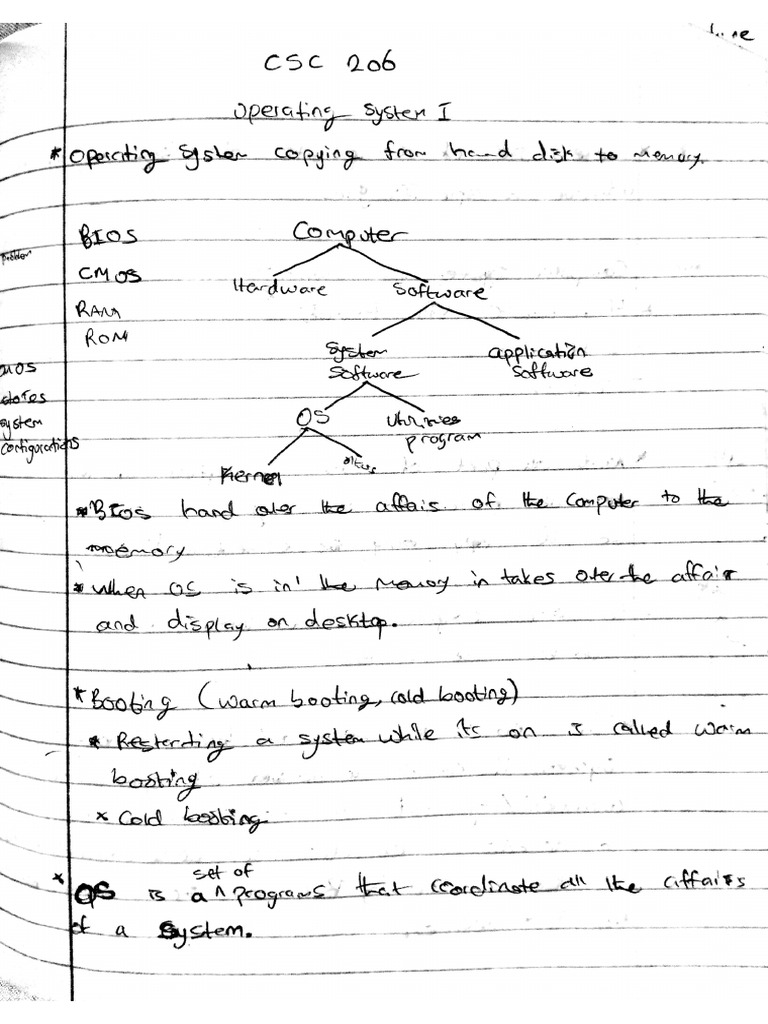 CSC 206
Operating System I
* Operating System copying from hard disk to memory.
BIOS
CMOS
RAM
ROM
Computer
Hardware Software
System Software
application Software
OS
Utilities program
Kernel
problem
stores
system
configurations
* BIOS hand over the affais of the computer to the
memory
* When OS is in the memory in takes over the affair
and display on desktop.
* Booting (warm booting, cold booting)
* Restarting a system while its on is called warm
booting
* Cold booting
set of
* OS is a ^ programs that coordinate all the affairs
of a System.